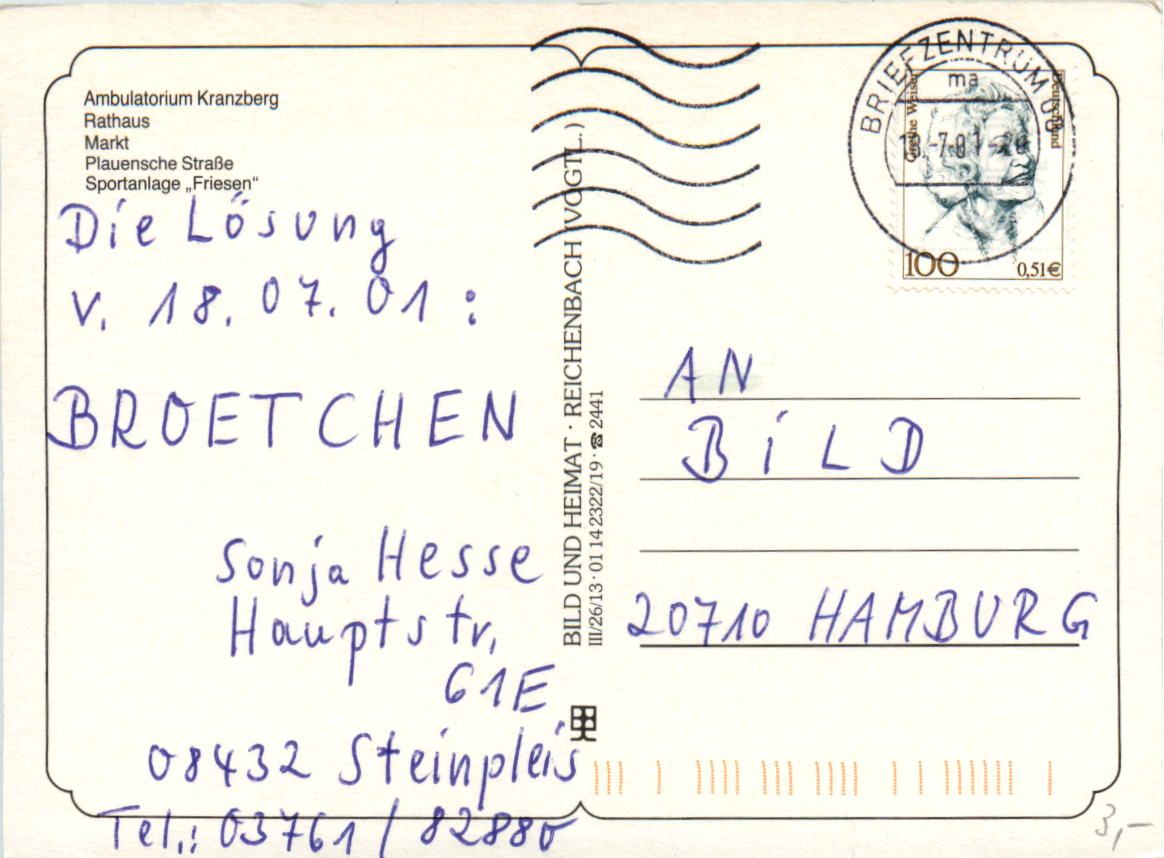 Ambulatorium Kranzberg
Rathaus
Markt
Plauensche Straße
Sportanlage „Friesen“
Die Lösung
v. 18.07.01:
BROETCHEN
Sonja Hesse
Hauptstr.
61E
08432 Steinpleis
Tel.: 03761 / 82880
BILD UND HEIMAT · REICHENBACH (VOGTL.)
III/26/13 · 01 14 2322/19 · ☎ 2441
BRIEFZENTRUM 08
ma
Grethe Weiser
Deutschland
100
0,51€
AN
BiLD
20710 HAMBURG
3,-